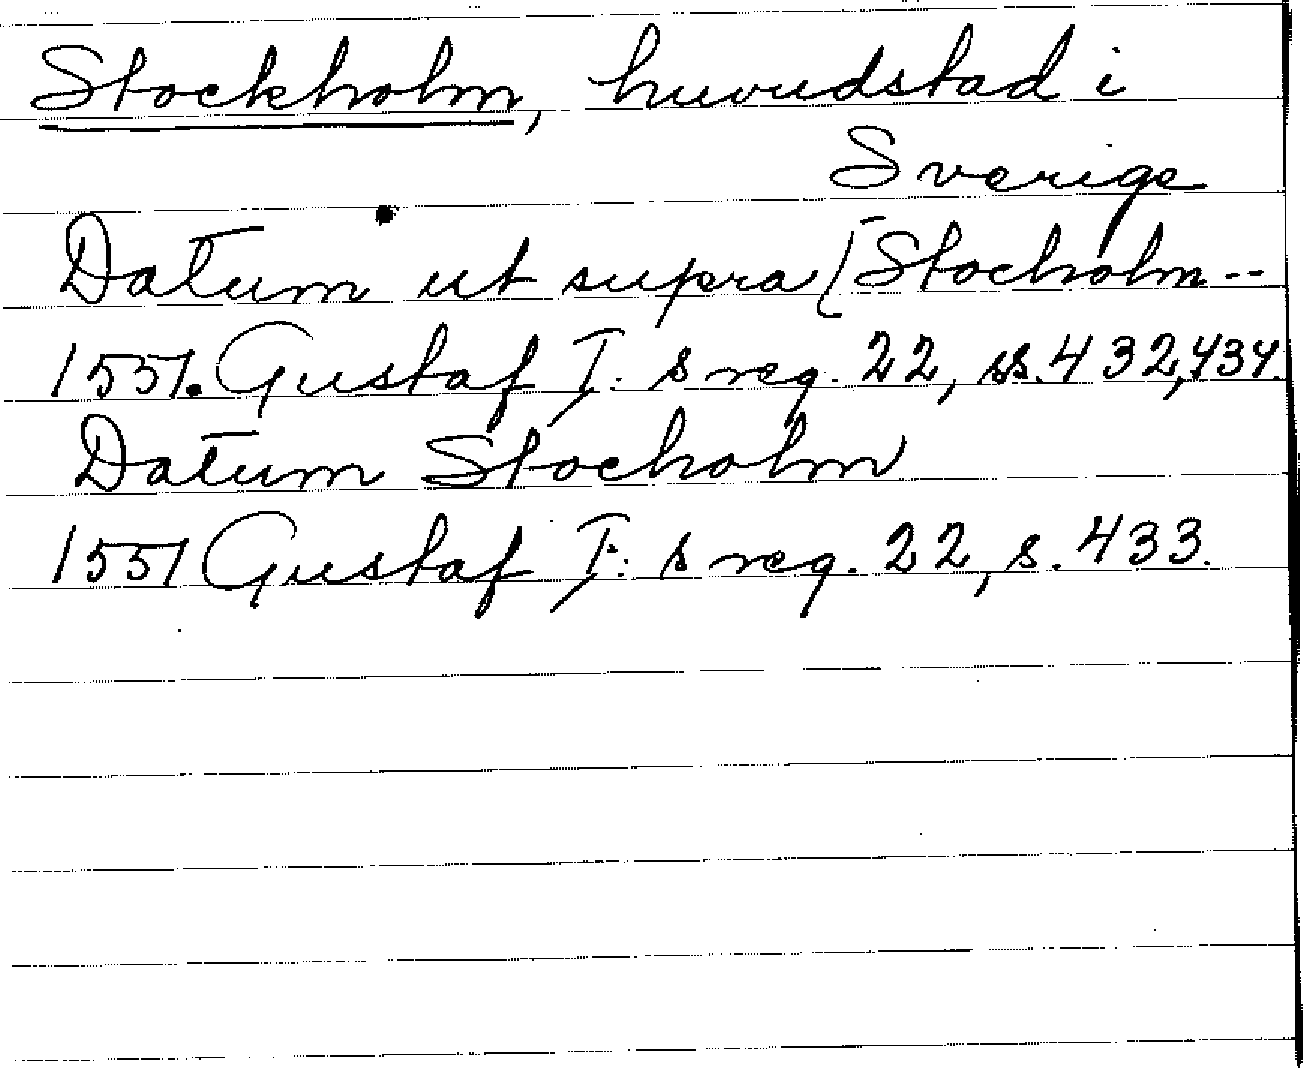 Stockholm, huvudstad i
Sverige
Datum ut supra (Stocholm --
1551. Gustaf I: s reg. 22, ss. 432, 434.
Datum Stocholm
1551 Gustaf I: s reg. 22, s. 433.